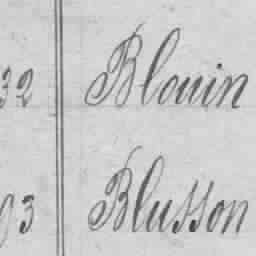 32 Blouin
93 Blusson